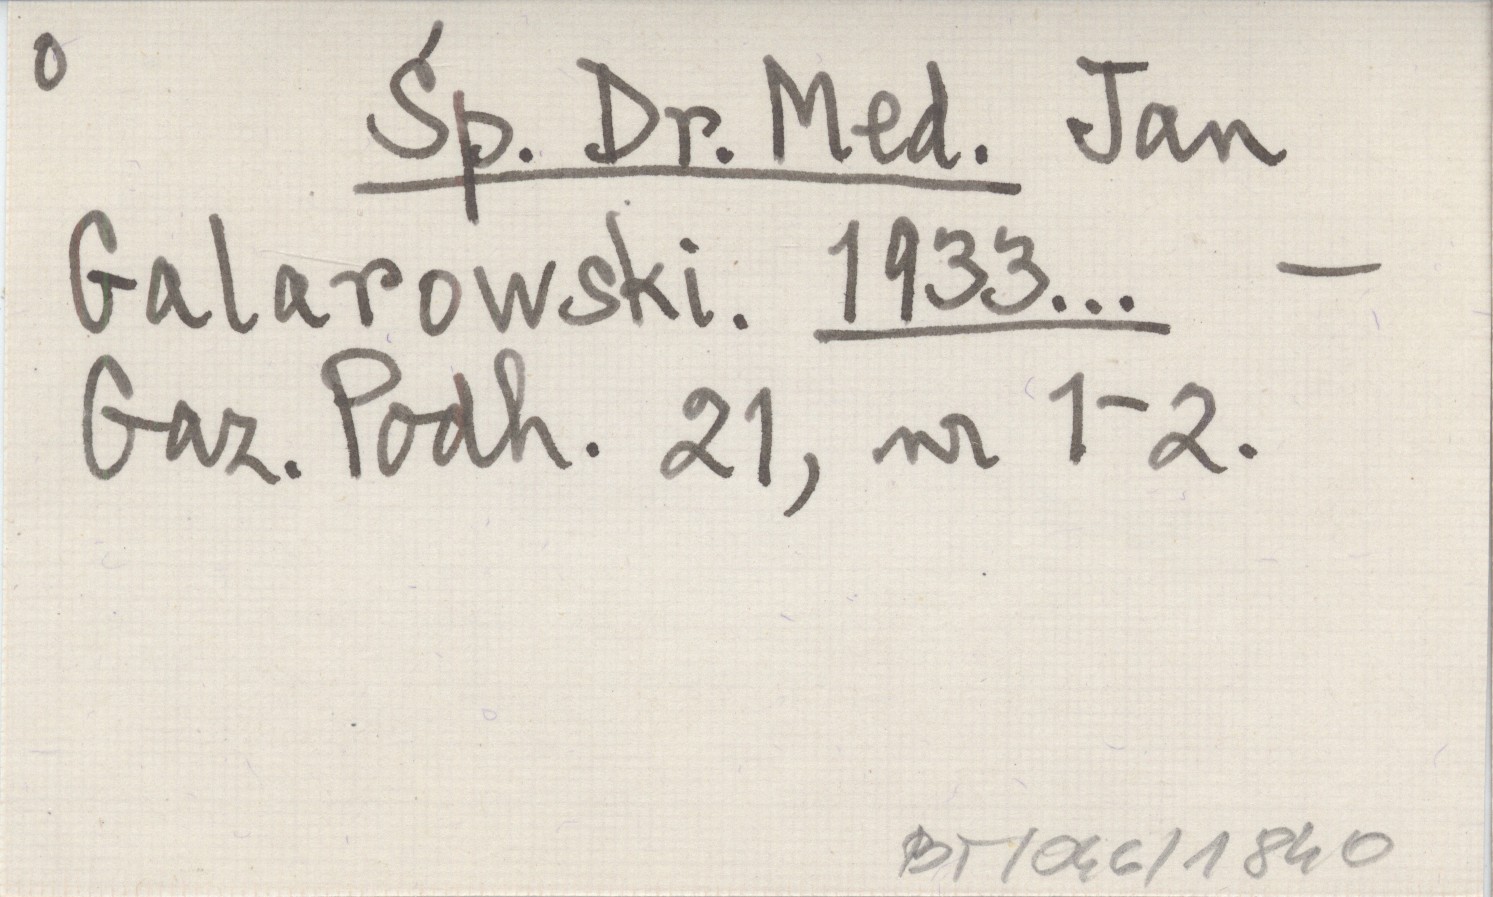 0
Śp. Dr. Med. Jan
Galarowski. 1933... —
Gaz. Podh. 21, nr 1-2.
BT/046/1840